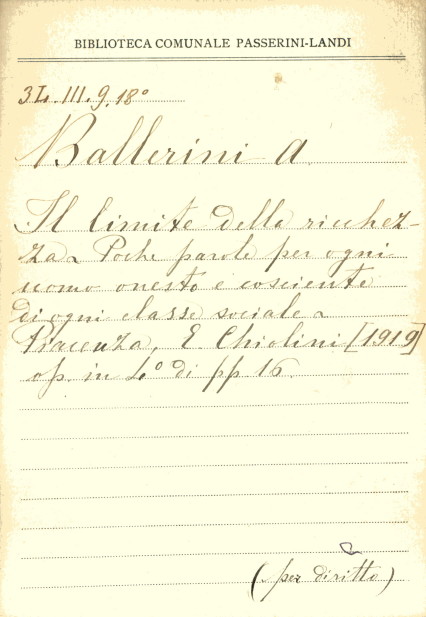 BIBLIOTECA COMUNALE PASSERINI-LANDI
3L. III. 9. 18°
Ballerini A.
Il limite della ricchez-
za - Poche parole per ogni
uomo onesto e cosciente
di ogni classe sociale -
Piacenza, E. Chiolini [1919]
op. in 4° di pp 16.
(per diritto)